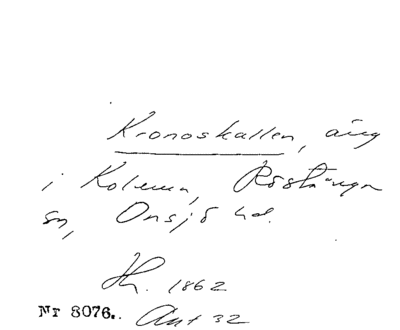 Kronoskallen, äng
i Kolema, Röstånga
sn, Onsjö hd.
Hh. 1862
Nr 8076. Ant 32